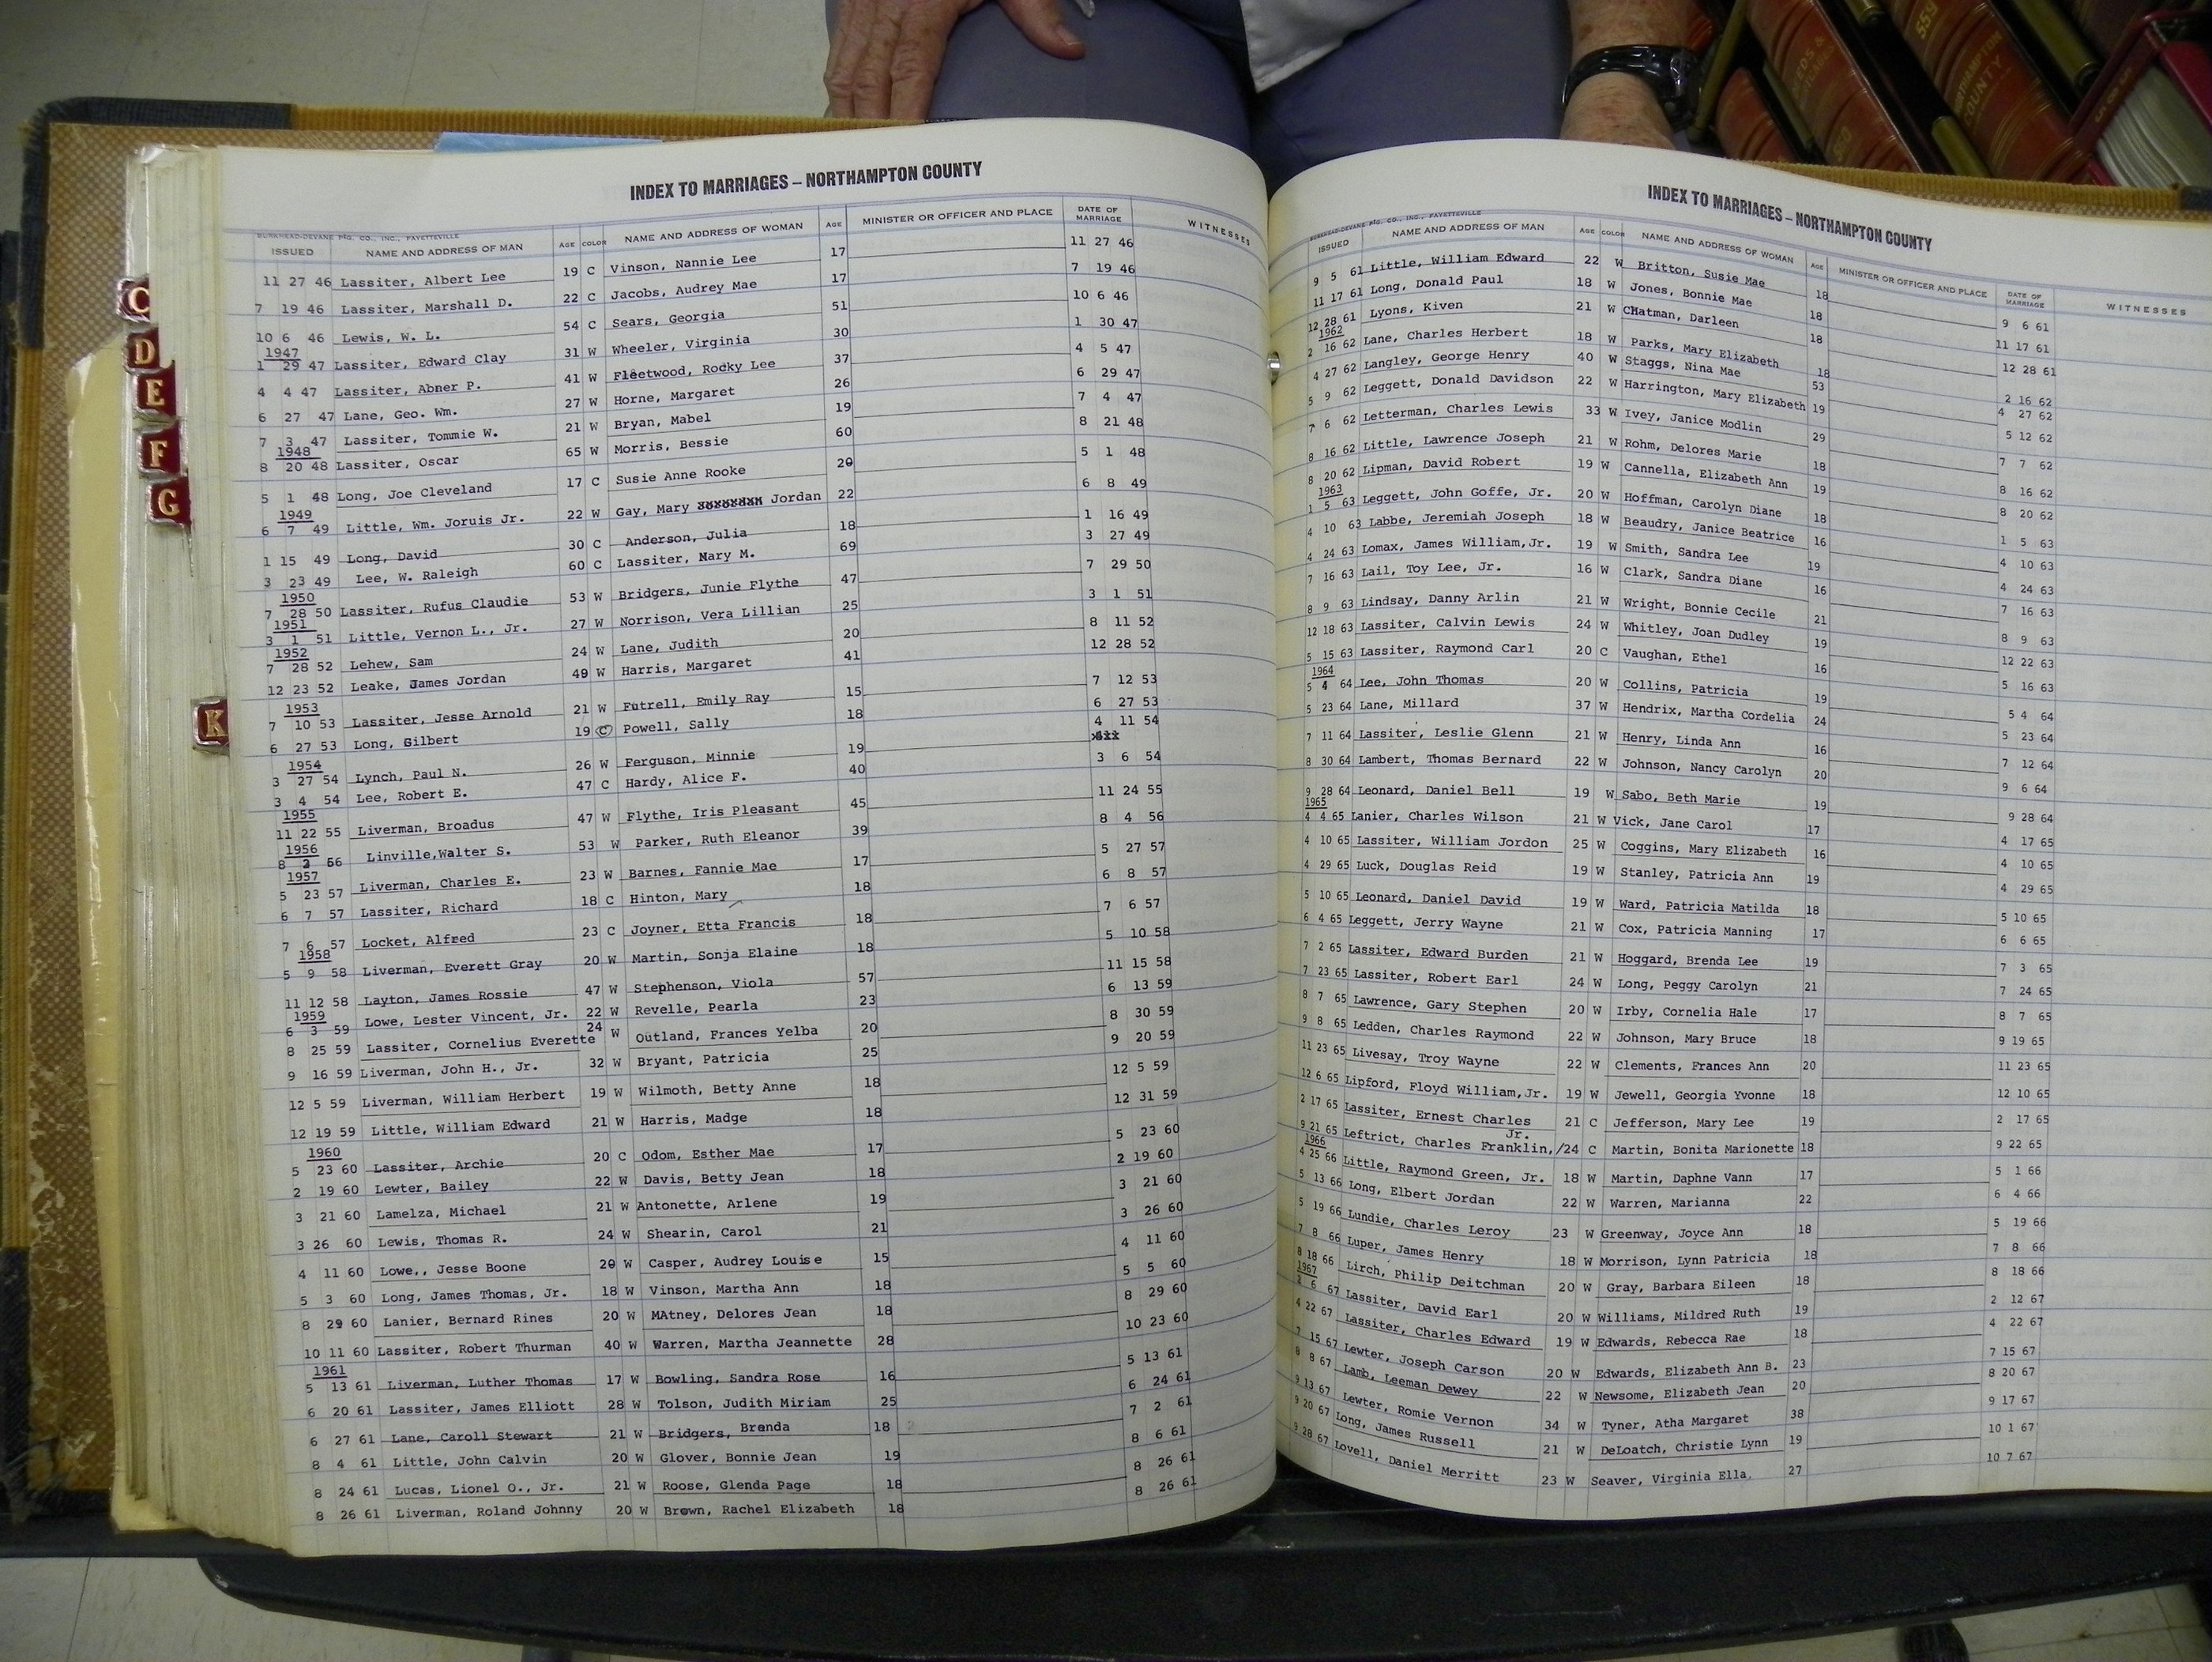 INDEX TO MARRIAGES – NORTHAMPTON COUNTY
BURKHEAD-DEVANE PTG. CO., INC., FAYETTEVILLE
ISSUED NAME AND ADDRESS OF MAN AGE COLOR NAME AND ADDRESS OF WOMAN AGE MINISTER OR OFFICER AND PLACE DATE OF MARRIAGE WITNESSES
11 27 46 Lassiter, Albert Lee 19 C Vinson, Nannie Lee 17 11 27 46
7 19 46 Lassiter, Marshall D. 22 C Jacobs, Audrey Mae 17 7 19 46
10 6 46 Lewis, W. L. 54 C Sears, Georgia 51 10 6 46
1947
1 29 47 Lassiter, Edward Clay 31 W Wheeler, Virginia 30 1 30 47
4 4 47 Lassiter, Abner P. 41 W Fleetwood, Rocky Lee 37 4 5 47
6 27 47 Lane, Geo. Wm. 27 W Horne, Margaret 26 6 29 47
7 3 47 Lassiter, Tommie W. 21 W Bryan, Mabel 19 7 4 47
1948
8 20 48 Lassiter, Oscar 65 W Morris, Bessie 60 8 21 48
5 1 48 Long, Joe Cleveland 17 C Susie Anne Rooke 20 5 1 48
1949
6 7 49 Little, Wm. Joruis Jr. 22 W Gay, Mary Jordan 22 6 8 49
1 15 49 Long, David 30 C Anderson, Julia 18 1 16 49
3 23 49 Lee, W. Raleigh 60 C Lassiter, Mary M. 69 3 27 49
1950
7 28 50 Lassiter, Rufus Claudie 53 W Bridgers, Junie Flythe 47 7 29 50
1951
3 1 51 Little, Vernon L., Jr. 27 W Norrison, Vera Lillian 25 3 1 51
1952
7 28 52 Lehew, Sam 24 W Lane, Judith 20 8 11 52
12 23 52 Leake, James Jordan 49 W Harris, Margaret 41 12 28 52
1953
7 10 53 Lassiter, Jesse Arnold 21 W Futrell, Emily Ray 15 7 12 53
6 27 53 Long, Gilbert 19 C Powell, Sally 18 6 27 53
1954
3 27 54 Lynch, Paul N. 26 W Ferguson, Minnie 19 4 11 54
3 4 54 Lee, Robert E. 47 C Hardy, Alice F. 40 3 6 54
1955
11 22 55 Liverman, Broadus 47 W Flythe, Iris Pleasant 45 11 24 55
1956
8 3 56 Linville,Walter S. 53 W Parker, Ruth Eleanor 39 8 4 56
1957
5 23 57 Liverman, Charles E. 23 W Barnes, Fannie Mae 17 5 27 57
6 7 57 Lassiter, Richard 18 C Hinton, Mary 18 6 8 57
7 6 57 Locket, Alfred 23 C Joyner, Etta Francis 18 7 6 57
1958
5 9 58 Liverman, Everett Gray 20 W Martin, Sonja Elaine 18 5 10 58
11 12 58 Layton, James Rossie 47 W Stephenson, Viola 57 11 15 58
1959
6 3 59 Lowe, Lester Vincent, Jr. 22 W Revelle, Pearla 23 6 13 59
8 25 59 Lassiter, Cornelius Everette 24 W Outland, Frances Yelba 20 8 30 59
9 16 59 Liverman, John H., Jr. 32 W Bryant, Patricia 25 9 20 59
12 5 59 Liverman, William Herbert 19 W Wilmoth, Betty Anne 18 12 5 59
12 19 59 Little, William Edward 21 W Harris, Madge 18 12 31 59
1960
5 23 60 Lassiter, Archie 20 C Odom, Esther Mae 17 5 23 60
2 19 60 Lewter, Bailey 22 W Davis, Betty Jean 18 2 19 60
3 21 60 Lamelza, Michael 21 W Antonette, Arlene 19 3 21 60
3 26 60 Lewis, Thomas R. 24 W Shearin, Carol 21 3 26 60
4 11 60 Lowe,, Jesse Boone 20 W Casper, Audrey Louise 15 4 11 60
5 3 60 Long, James Thomas, Jr. 18 W Vinson, Martha Ann 18 5 5 60
8 29 60 Lanier, Bernard Rines 20 W MAtney, Delores Jean 18 8 29 60
10 11 60 Lassiter, Robert Thurman 40 W Warren, Martha Jeannette 28 10 23 60
1961
5 13 61 Liverman, Luther Thomas 17 W Bowling, Sandra Rose 16 5 13 61
6 20 61 Lassiter, James Elliott 28 W Tolson, Judith Miriam 25 6 24 61
6 27 61 Lane, Caroll Stewart 21 W Bridgers, Brenda 18 7 2 61
8 4 61 Little, John Calvin 20 W Glover, Bonnie Jean 19 8 6 61
8 24 61 Lucas, Lionel O., Jr. 21 W Roose, Glenda Page 18 8 26 61
8 26 61 Liverman, Roland Johnny 20 W Brown, Rachel Elizabeth 18 8 26 61
C
D
E
F
G
K
INDEX TO MARRIAGES – NORTHAMPTON COUNTY
BURKHEAD-DEVANE PTG. CO., INC., FAYETTEVILLE
ISSUED NAME AND ADDRESS OF MAN AGE COLOR NAME AND ADDRESS OF WOMAN AGE MINISTER OR OFFICER AND PLACE DATE OF MARRIAGE WITNESSES
9 5 61 Little, William Edward 22 W Britton, Susie Mae 18 9 6 61
11 17 61 Long, Donald Paul 18 W Jones, Bonnie Mae 18 11 17 61
12 28 61 Lyons, Kiven 21 W CHatman, Darleen 18 12 28 61
1962
2 16 62 Lane, Charles Herbert 18 W Parks, Mary Elizabeth 18 2 16 62
4 27 62 Langley, George Henry 40 W Staggs, Nina Mae 53 4 27 62
5 9 62 Leggett, Donald Davidson 22 W Harrington, Mary Elizabeth 19 5 12 62
7 6 62 Letterman, Charles Lewis 33 W Ivey, Janice Modlin 29 7 7 62
8 16 62 Little, Lawrence Joseph 21 W Rohm, Delores Marie 18 8 16 62
8 20 62 Lipman, David Robert 19 W Cannella, Elizabeth Ann 19 8 20 62
1963
1 5 63 Leggett, John Goffe, Jr. 20 W Hoffman, Carolyn Diane 18 1 5 63
4 10 63 Labbe, Jeremiah Joseph 18 W Beaudry, Janice Beatrice 16 4 10 63
4 24 63 Lomax, James William,Jr. 19 W Smith, Sandra Lee 19 4 24 63
7 16 63 Lail, Toy Lee, Jr. 16 W Clark, Sandra Diane 16 7 16 63
8 9 63 Lindsay, Danny Arlin 21 W Wright, Bonnie Cecile 21 8 9 63
12 18 63 Lassiter, Calvin Lewis 24 W Whitley, Joan Dudley 19 12 22 63
5 15 63 Lassiter, Raymond Carl 20 C Vaughan, Ethel 16 5 16 63
1964
5 4 64 Lee, John Thomas 20 W Collins, Patricia 19 5 4 64
5 23 64 Lane, Millard 37 W Hendrix, Martha Cordelia 24 5 23 64
7 11 64 Lassiter, Leslie Glenn 21 W Henry, Linda Ann 16 7 12 64
8 30 64 Lambert, Thomas Bernard 22 W Johnson, Nancy Carolyn 20 9 6 64
9 28 64 Leonard, Daniel Bell 19 W Sabo, Beth Marie 19 9 28 64
1965
4 4 65 Lanier, Charles Wilson 21 W Vick, Jane Carol 17 4 17 65
4 10 65 Lassiter, William Jordon 25 W Coggins, Mary Elizabeth 16 4 10 65
4 29 65 Luck, Douglas Reid 19 W Stanley, Patricia Ann 19 4 29 65
5 10 65 Leonard, Daniel David 19 W Ward, Patricia Matilda 18 5 10 65
6 4 65 Leggett, Jerry Wayne 21 W Cox, Patricia Manning 17 6 6 65
7 2 65 Lassiter, Edward Burden 21 W Hoggard, Brenda Lee 19 7 3 65
7 23 65 Lassiter, Robert Earl 24 W Long, Peggy Carolyn 21 7 24 65
8 7 65 Lawrence, Gary Stephen 20 W Irby, Cornelia Hale 17 8 7 65
9 8 65 Ledden, Charles Raymond 22 W Johnson, Mary Bruce 18 9 19 65
11 23 65 Livesay, Troy Wayne 22 W Clements, Frances Ann 20 11 23 65
12 6 65 Lipford, Floyd William,Jr. 19 W Jewell, Georgia Yvonne 18 12 10 65
2 17 65 Lassiter, Ernest Charles 21 C Jefferson, Mary Lee 19 2 17 65
Jr.
9 21 65 Leftrict, Charles Franklin,/24 C Martin, Bonita Marionette 18 9 22 65
1966
4 25 66 Little, Raymond Green, Jr. 18 W Martin, Daphne Vann 17 5 1 66
5 13 66 Long, Elbert Jordan 22 W Warren, Marianna 22 6 4 66
5 19 66 Lundie, Charles Leroy 23 W Greenway, Joyce Ann 18 5 19 66
7 8 66 Luper, James Henry 18 W Morrison, Lynn Patricia 18 7 8 66
8 18 66 Lirch, Philip Deitchman 20 W Gray, Barbara Eileen 18 8 18 66
1967
2 6 67 Lassiter, David Earl 20 W Williams, Mildred Ruth 19 2 12 67
4 22 67 Lassiter, Charles Edward 19 W Edwards, Rebecca Rae 18 4 22 67
7 15 67 Lewter, Joseph Carson 20 W Edwards, Elizabeth Ann B. 23 7 15 67
8 8 67 Lamb, Leeman Dewey 22 W Newsome, Elizabeth Jean 20 8 20 67
9 13 67 Lewter, Romie Vernon 34 W Tyner, Atha Margaret 38 9 17 67
9 20 67 Long, James Russell 21 W DeLoatch, Christie Lynn 19 10 1 67
9 28 67 Lovell, Daniel Merritt 23 W Seaver, Virginia Ella. 27 10 7 67
559
NORTHAMPTON
COUNTY